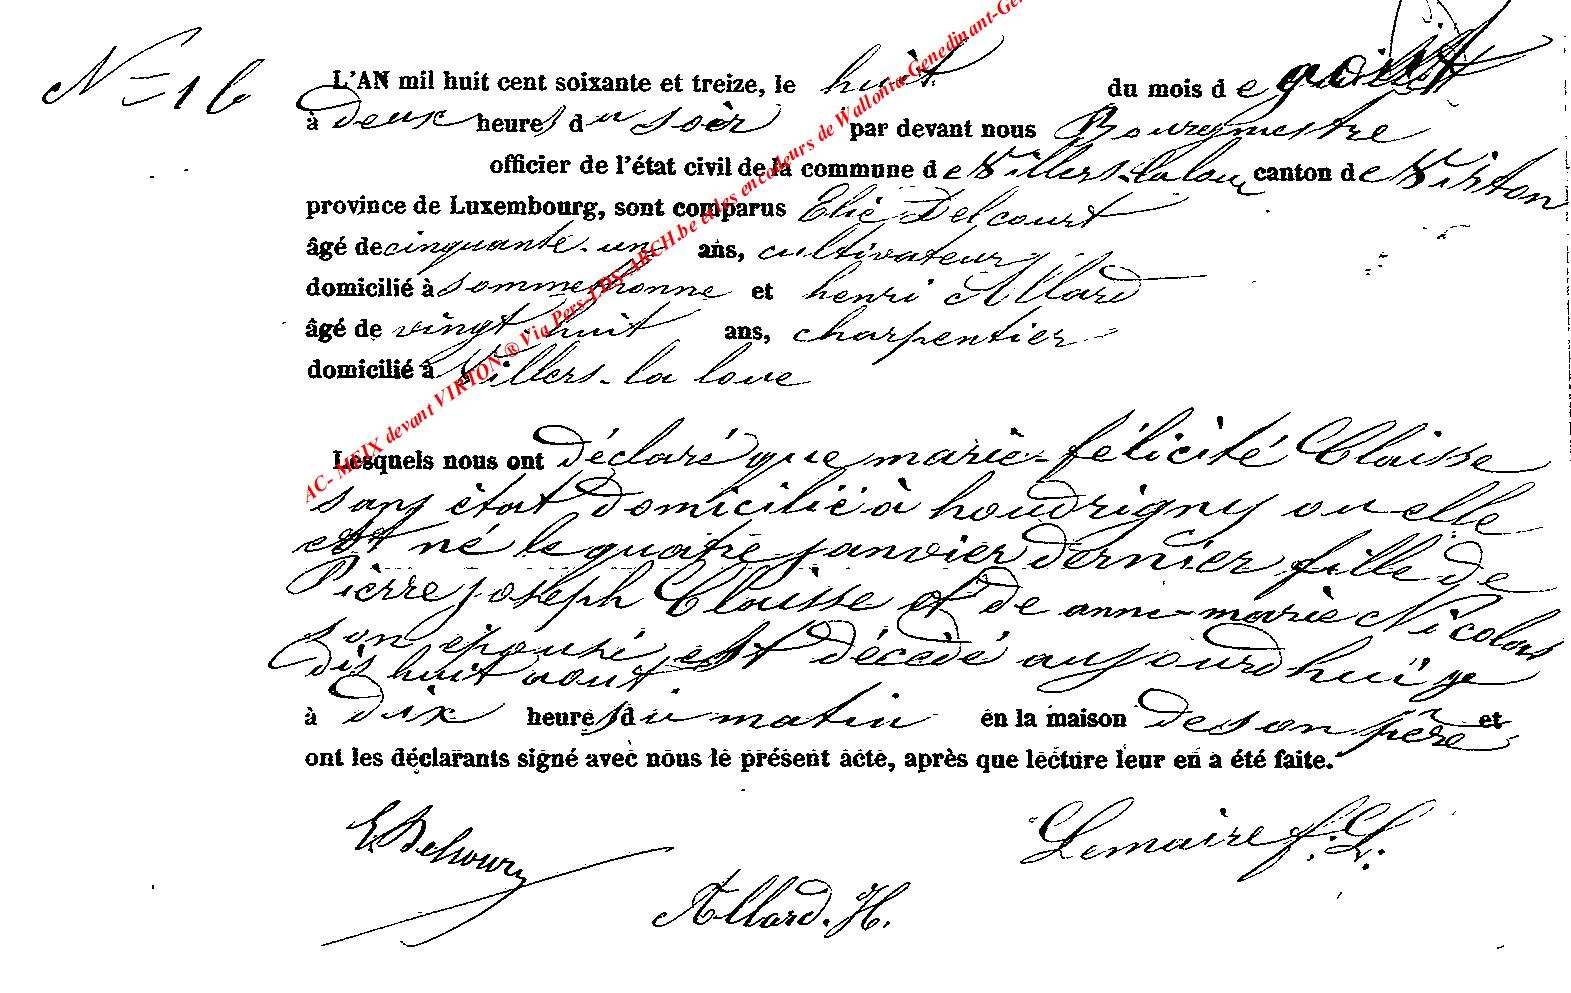 N° 16
L'AN mil huit cent soixante et treize, le huit du mois d e aout
à deux heures du soir par devant nous Bourgmestre
officier de l'état civil de la commune de Villers-la loue canton de Virton
province de Luxembourg, sont comparus Elie Delcourt
âgé de cinquante-un ans, cultivateur
domicilié à sommethonne et henri Allard
âgé de vingt huit ans, charpentier
domicilié à Villers-la loue
Lesquels nous ont déclaré que marie-félicité Claisse
sans état domicilié à houdrigny ou elle
est né le quatre janvier dernier fille de
Pierre joseph Claisse et de anne-marie Nicolas
son épouse est décédé aujourdhui
dix huit aout
à dix heures du matin en la maison de son père et
ont les déclarants signé avec nous le présent acte, après que lecture leur en a été faite.
E Delcourt
Lemaire f. L.
Allard. H.
AC- MEIX devant VIRTON ® Via Pers-LDS-ARCH.be et les encodeurs de Wallonia-Genedinant-Ge